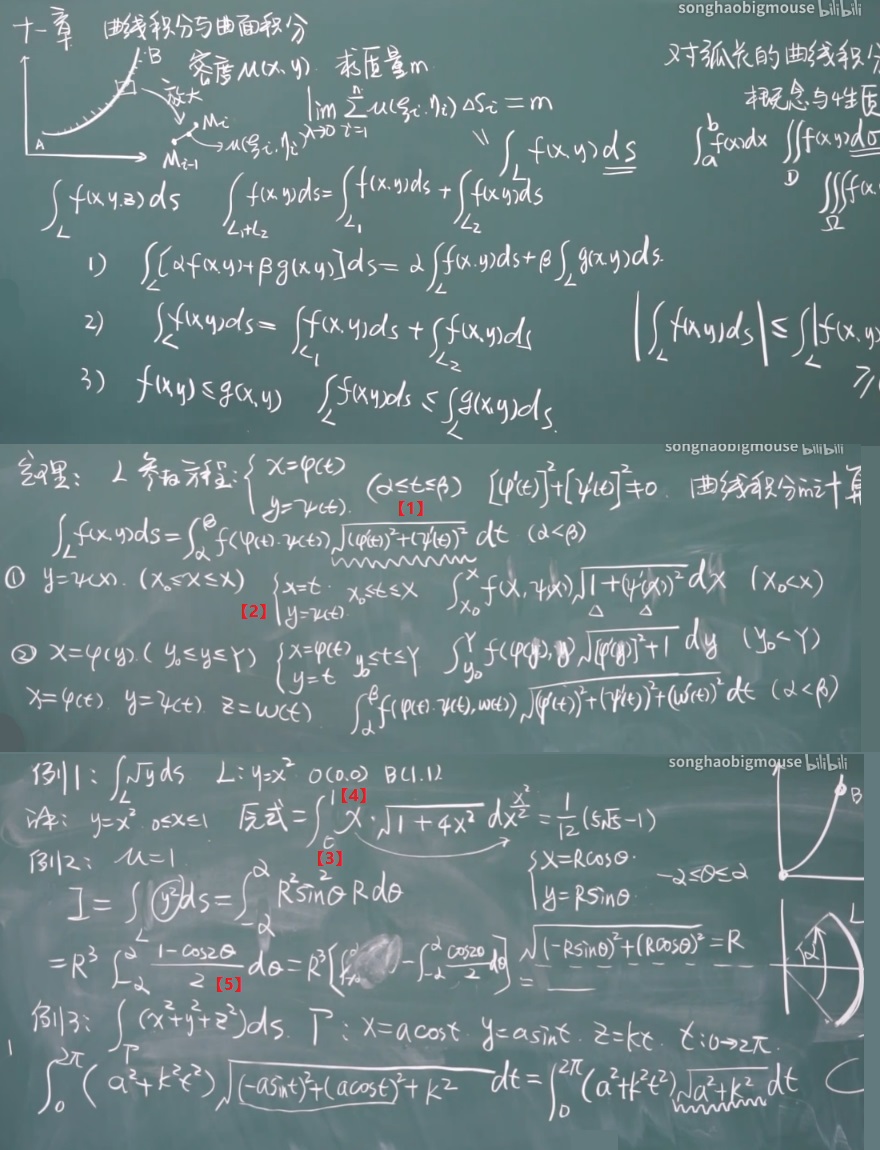 songhaobigmouse bilibili
十一章 曲线积分与曲面积分
B 密度μ(x,y) 求质量m
对弧长的曲线积分
放大
lim_{λ→0} Σ_{i=1}^{n} μ(ξi,ηi)ΔSi = m
概念与性质
A M_{i-1} M_i μ(ξi,ηi)
∫_L f(x,y)ds
∫_a^b f(x)dx ∬_D f(x,y)dσ
∫_L f(x,y,z)ds ∫_{L1+L2} f(x,y)ds = ∫_{L1} f(x,y)ds + ∫_{L2} f(x,y)ds
∭_Ω f(x,
1) ∫_L [αf(x,y)+βg(x,y)]ds = α∫_L f(x,y)ds + β∫_L g(x,y)ds.
2) ∫_L f(x,y)ds = ∫_{L1} f(x,y)ds + ∫_{L2} f(x,y)ds
|∫_L f(x,y)ds| ≤ ∫_L |f(x,y)
3) f(x,y) ≤ g(x,y) ∫_L f(x,y)ds ≤ ∫_L g(x,y)ds.
songhaobigmouse bilibili
定理: L 参数方程: { x=φ(t) y=ψ(t). (α≤t≤β) [φ'(t)]²+[ψ'(t)]²≠0. 曲线积分的计算
【1】
∫_L f(x,y)ds = ∫_α^β f(φ(t),ψ(t))√((φ'(t))²+(ψ'(t))²) dt (α<β)
① y=ψ(x). (x₀≤x≤X) 【2】 { x=t y=ψ(t). x₀≤t≤X ∫_{x₀}^X f(x,ψ(x))√(1+(ψ'(x))²) dx (x₀<X)
② x=φ(y). (y₀≤y≤Y) { x=φ(t) y=t y₀≤t≤Y ∫_{y₀}^Y f(φ(y),y)√([φ'(y)]²+1) dy (y₀<Y)
x=φ(t). y=ψ(t). z=ω(t). ∫_α^β f(φ(t),ψ(t),ω(t))√((φ'(t))²+(ψ'(t))²+(ω'(t))²) dt (α<β)
songhaobigmouse bilibili
例1: ∫_L √y ds L: y=x² O(0,0) B(1,1)
B
【4】
解: y=x² 0≤x≤1 原式=∫_0^1 x·√(1+4x²) dx x²/2 = 1/12(5√5-1)
【3】
例2: μ=1 { x=Rcosθ. y=Rsinθ. -α≤θ≤α
I=∫_L y² ds = ∫_{-α}^{α} R²sin²θ R dθ
L
α
=R³ ∫_{-α}^{α} (1-cos2θ)/2 dθ = R³[ - ∫_{-α}^{α} cos2θ/2 dθ] √((-Rsinθ)²+(Rcosθ)²) = R
【5】
=
例3: ∫_Γ (x²+y²+z²)ds. Γ: x=acost. y=asint. z=kt. t:0→2π.
∫_0^{2π} (a²+k²t²)√((-asint)²+(acost)²+k²) dt = ∫_0^{2π} (a²+k²t²)√(a²+k²) dt